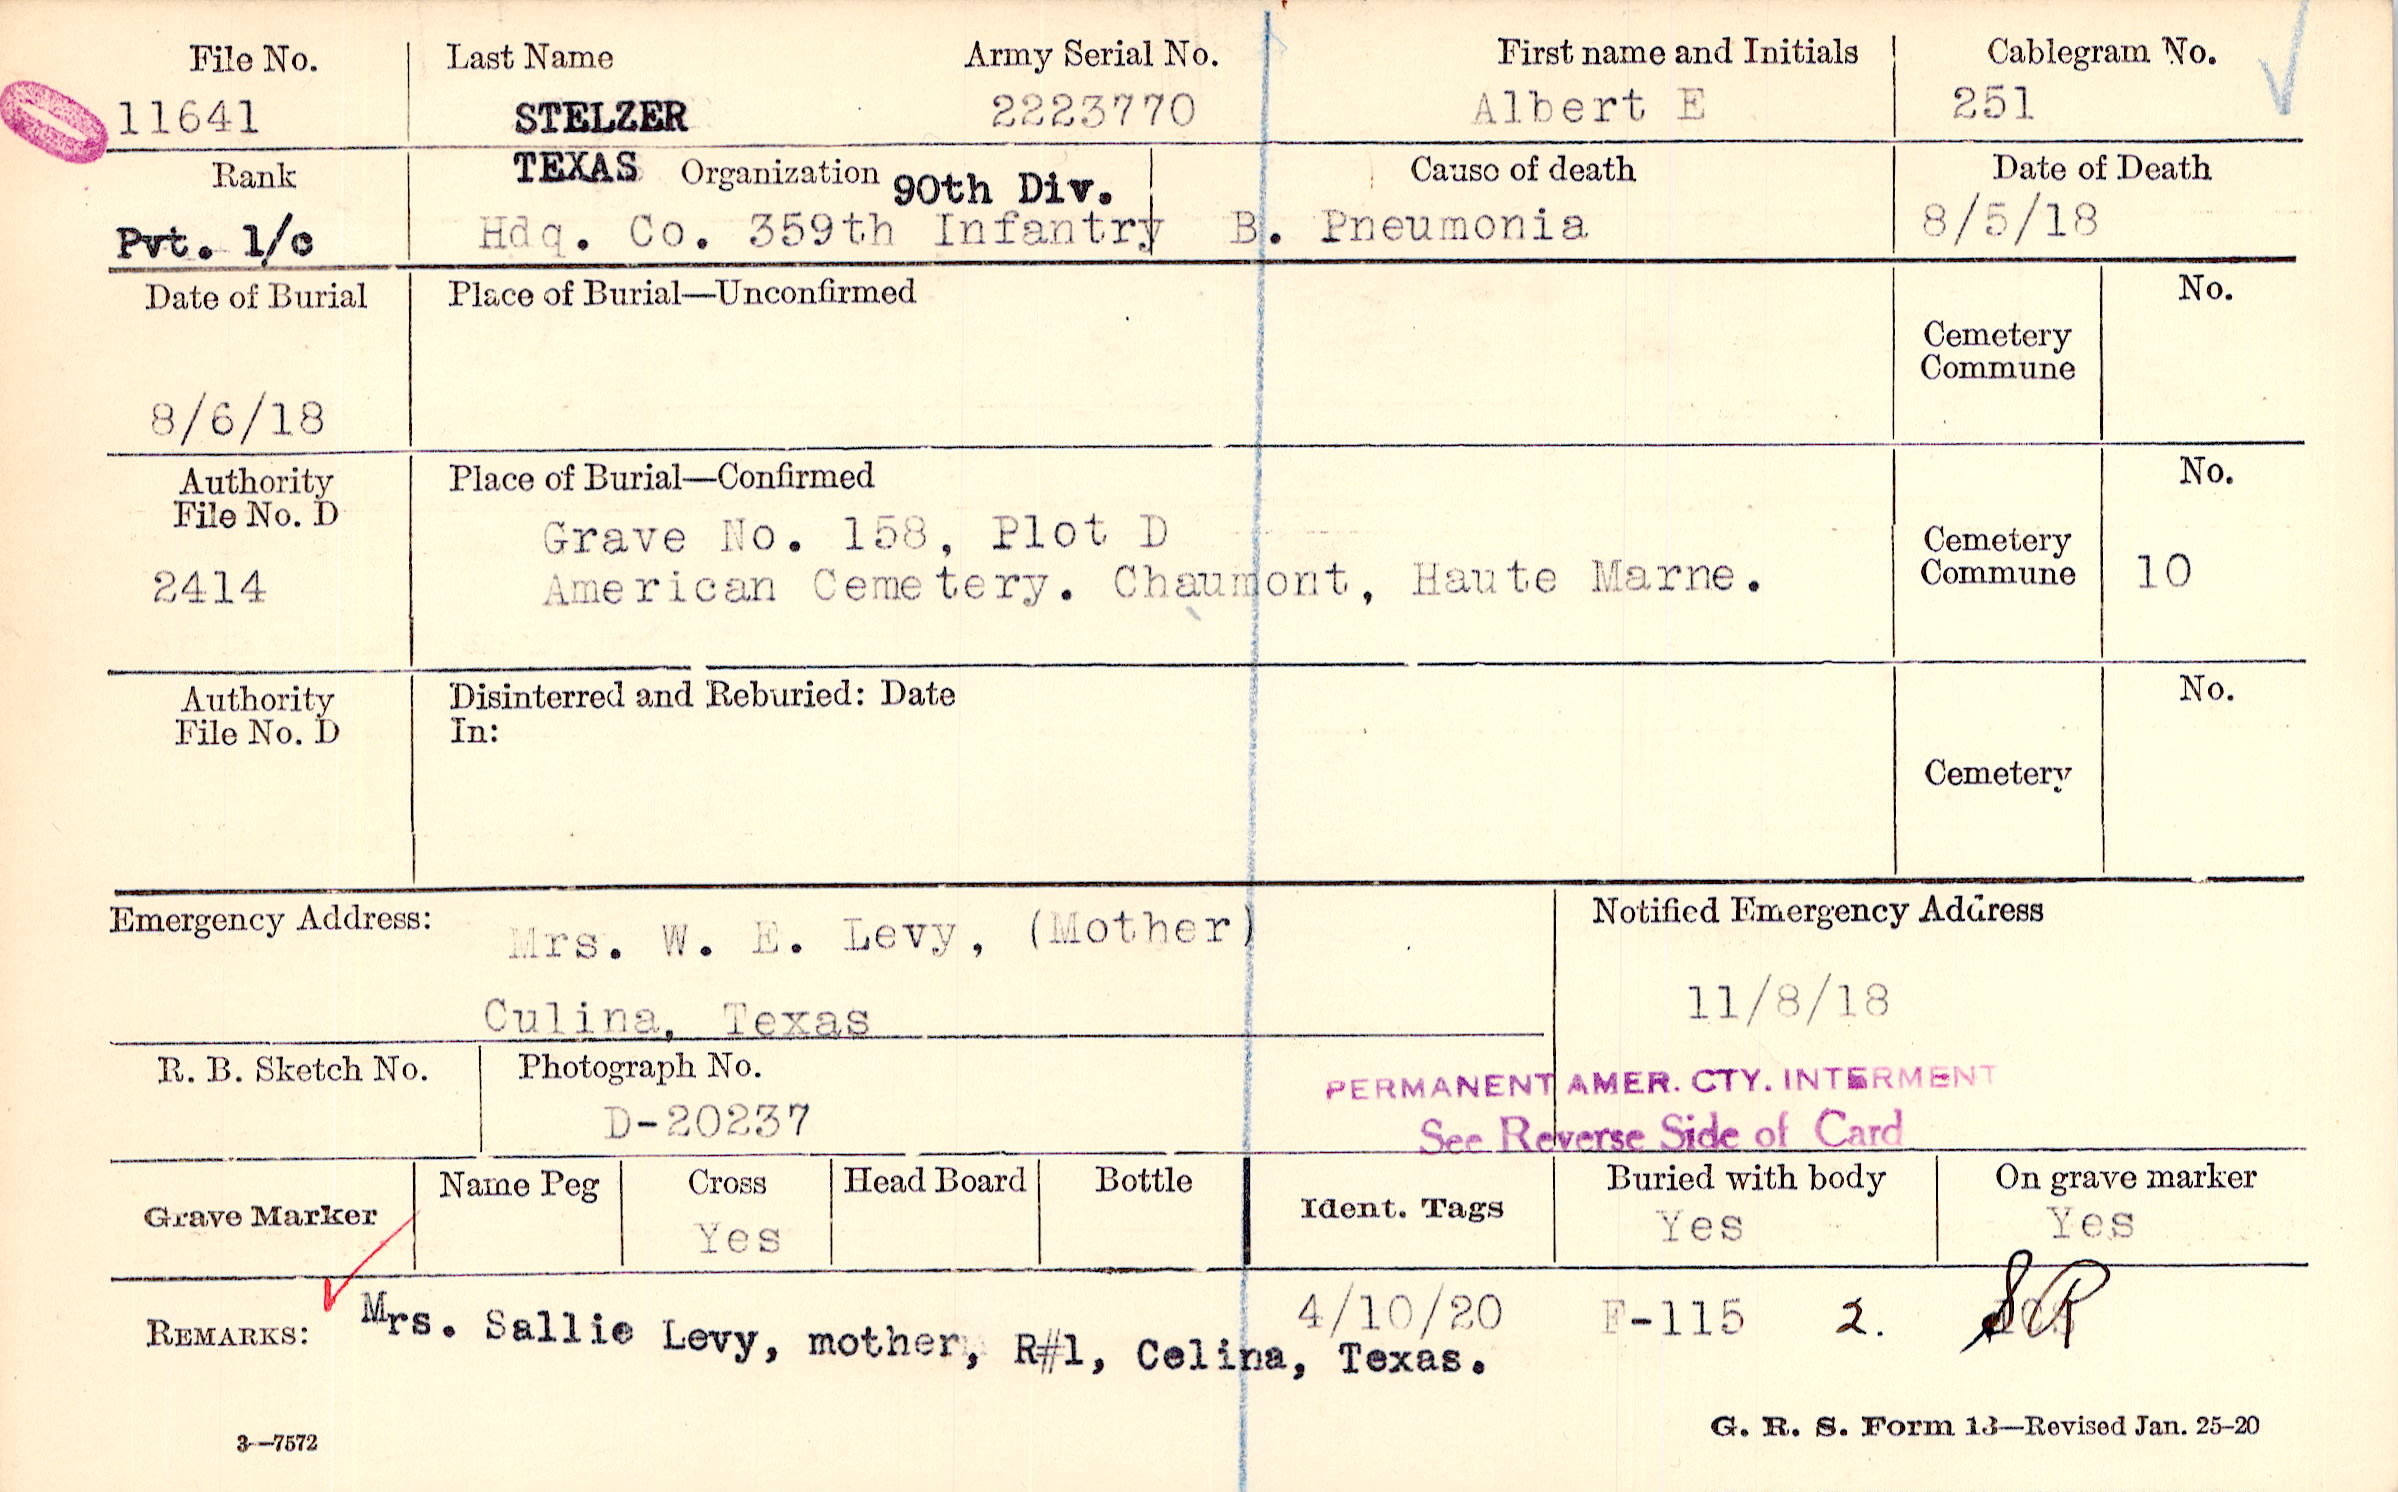 File No. Last Name Army Serial No. First name and Initials Cablegram No.
11641 STELZER 2223770 Albert E 251
Rank TEXAS Organization 90th Div. Cause of death Date of Death
Pvt. 1/c Hdq. Co. 359th Infantry B. Pneumonia 8/5/18
Date of Burial Place of Burial—Unconfirmed No.
Cemetery
Commune
8/6/18
Authority Place of Burial—Confirmed No.
File No. D
Grave No. 158, Plot D Cemetery
2414 American Cemetery. Chaumont, Haute Marne. Commune 10
Authority Disinterred and Reburied: Date No.
File No. D In:
Cemetery
Emergency Address: Mrs. W. E. Levy, (Mother) Notified Emergency Address
Culina, Texas 11/8/18
R. B. Sketch No. Photograph No. PERMANENT AMER. CTY. INTERMENT
D-20237 See Reverse Side of Card
Grave Marker Name Peg Cross Head Board Bottle Ident. Tags Buried with body On grave marker
Yes Yes Yes
4/10/20 F-115 2.
REMARKS: Mrs. Sallie Levy, mother, R#1, Celina, Texas.
3—7572 G. R. S. Form 13—Revised Jan. 25-20